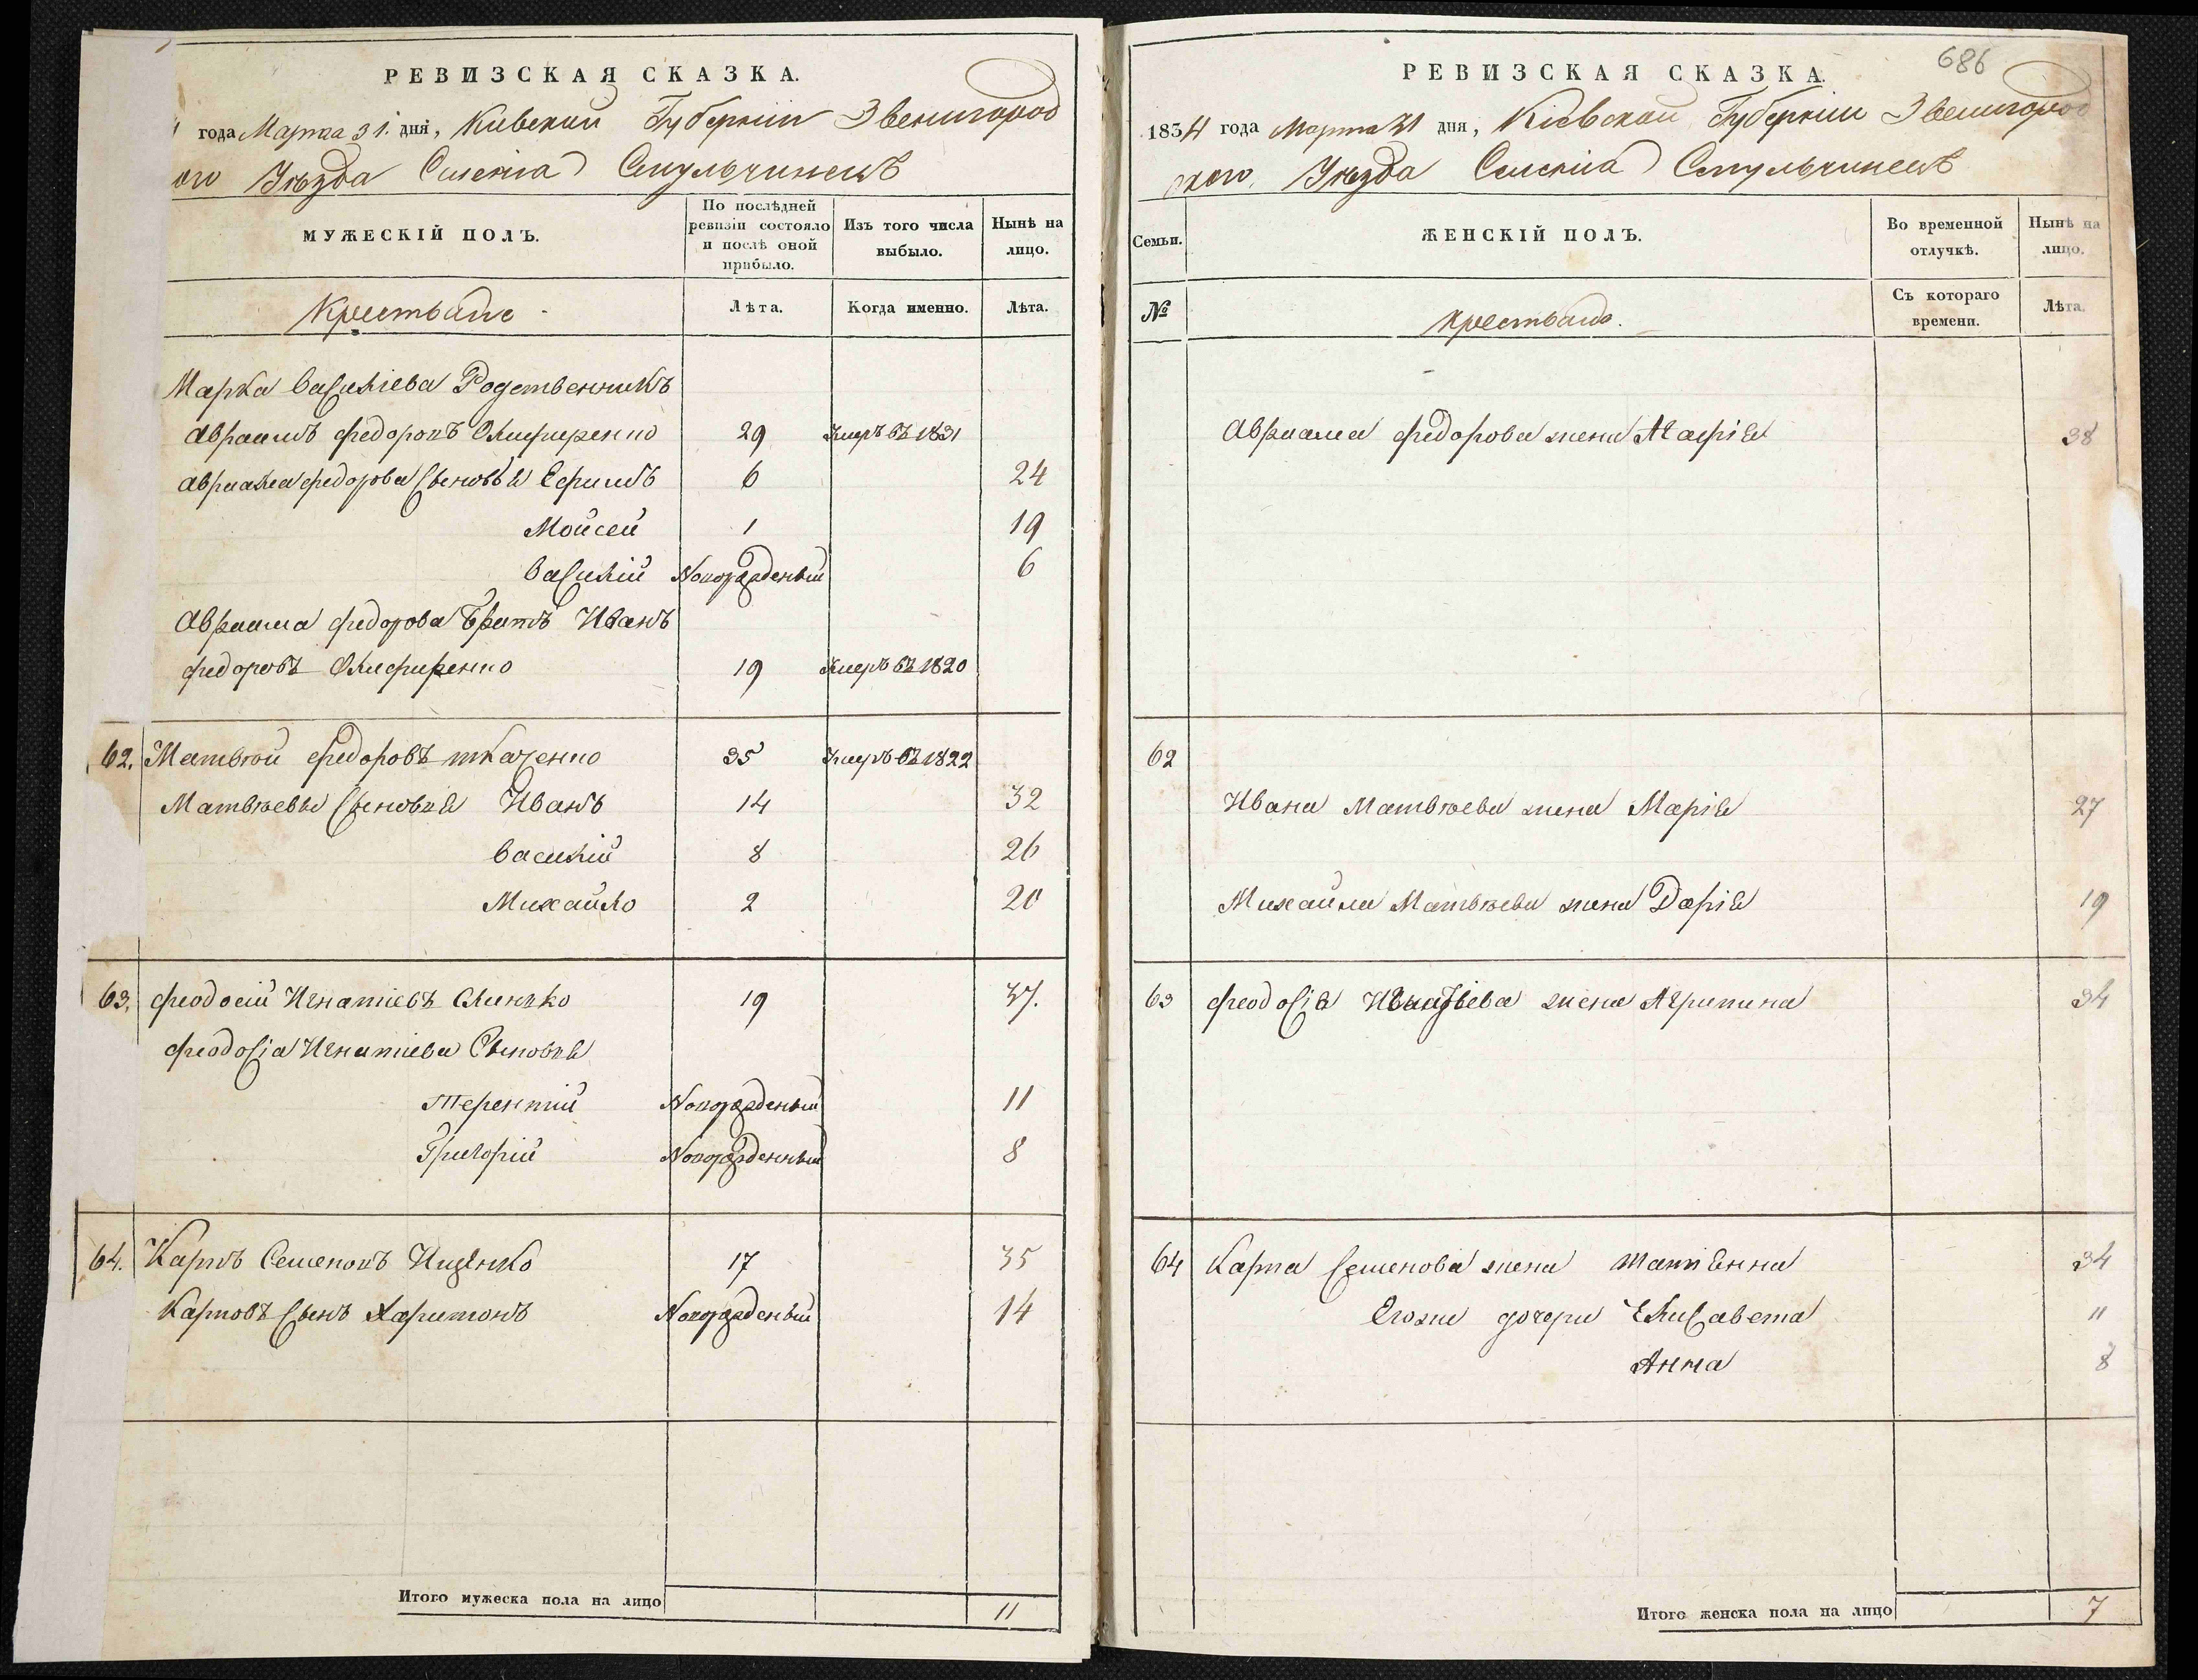 РЕВИЗСКАЯ СКАЗКА.
года Марта 31. дня, Киевской Губернии Звенигород
ого Уезда Селенiя Стульчинецъ
МУЖЕСКІЙ ПОЛЪ.
По послѣдней ревизіи состояло и послѣ оной прибыло.
Изъ того числа выбыло.
Нынѣ на лицо.
Крестьяне
Лѣта.
Когда именно.
Лѣта.
Марка Васильева Родственникъ
Авраамъ Федоровъ Олифиренко 29 Умеръ въ 1831
Авраама Федорова Сыновья Ефимъ 6 24
Мойсей 1 19
Василій Новорожденый 6
Авраама Федорова Братъ Иванъ
Федоровъ Олифиренко 19 Умеръ въ 1820
62. Матвѣй Федоровъ Ткаченко 35 Умеръ въ 1822
Матвѣевы Сыновья Иванъ 14 32
Василій 8 26
Михайло 2 20
63. Феодосій Игнатіевъ Олинъко 19 37.
Феодосіа Игнатіева Сыновья
Терентій Новорожденый 11
Григорій Новорожденный 8
64. Карпъ Семеновъ Ищенко 17 35
Карповъ Сынъ Харитонъ Новорожденый 14
Итого мужеска пола на лицо 11
686
РЕВИЗСКАЯ СКАЗКА.
1834 года Марта 31 дня, Кіевской Губерніи Звенигород
ского Уезда Селенiя Стульчинецъ
Семьи.
ЖЕНСКІЙ ПОЛЪ.
Во временной отлучкѣ.
Нынѣ на лицо.
№
Крестьяне.
Съ котораго времени.
Лѣта.
Авраама Федорова жена Агафія 38
62
Ивана Матвѣева жена Марія 27
Михайла Матвѣева жена Дарія 19
63 Феодосія жена Агрипина 34
64 Карпа Семенова жена Татіянна 34
Егоже дочери Елисавета 11
Анна 8
Итого женска пола на лицо 7